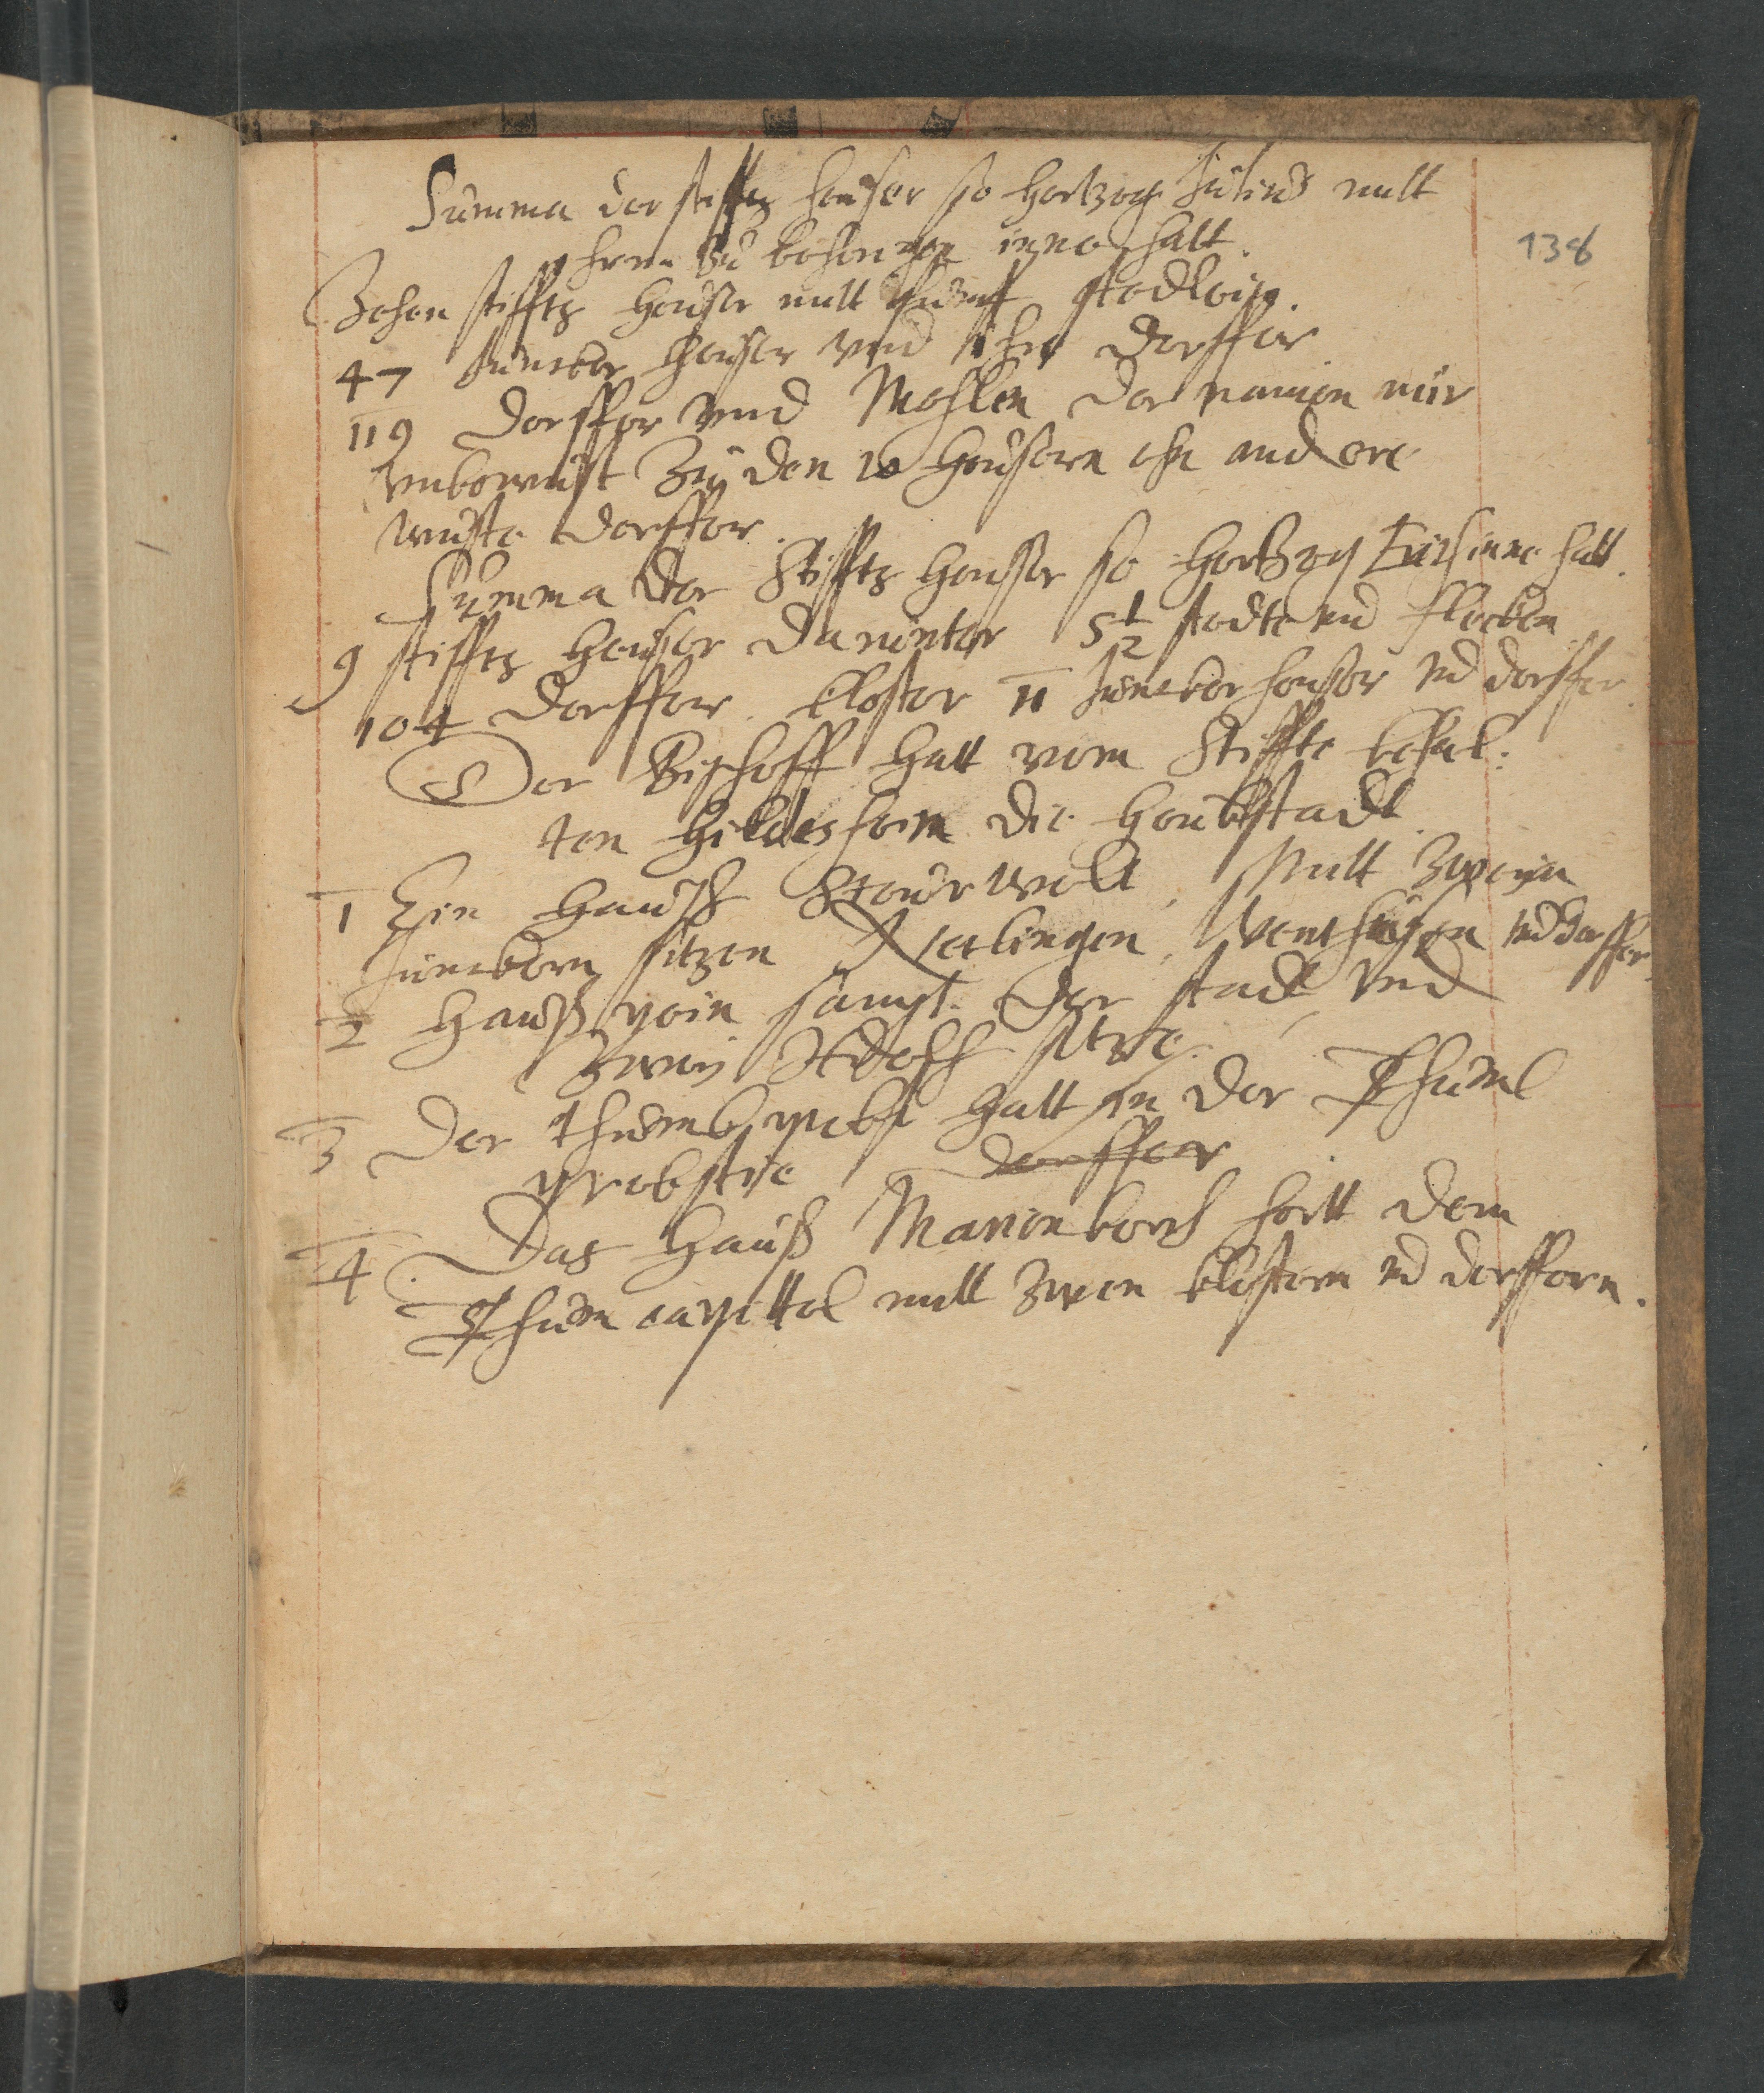 Summa der stifftz heuser so hertzog Julius mitt
ihren zu behorungen inne hatt.
138
Zehen stifftz heuser mitt stedlein.
47 Juncker heuser vnd ihre dorffer
119 dorffer vnd Mohlen der namen mir
vnbewust zu den 10 heusern ohn andere
wuste dorffer.
Summa der Stifftz heusser so hertzog Erich inne hatt.
9 stifftz heuser darunter 5 1/2 stedte vnd flecken
104 dorffer. kloster 11 Juncker heuser vnd dorffer.
Der Bischoff hatt vom Stiffte behal:
ten Hildesheim die heubtstadt.
1 Ein hauß Steurwolt, Mitt zweien
Junckern sitzen Netlingen, Wenthusen vnd dorffer.
2 Hauß pein sampt der stadt vnd
zwey Adelh sitze.
3 Der thumb probst hatt in der Thum
probstie dorffer
4 Das hauß Marienborch hortt dem
Thum capittel mitt zween klostern vnd dorffern.